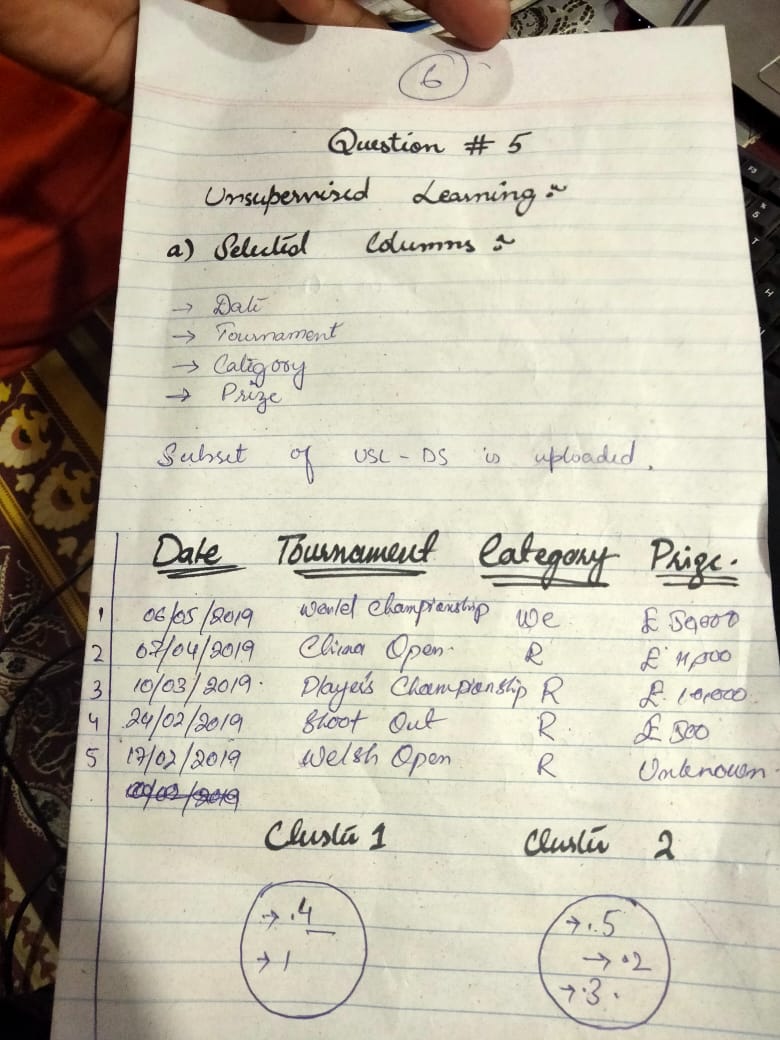 6
Question # 5
Unsupervised Learning :~
a) Selected Columns :~
→ Date
→ Tournament
→ Category
→ Prize
Subset of USL-DS is uploaded.
Date Tournament Category Prize.
1 06/05/2019 World Championship We £ 50,000
2 07/04/2019 China Open. R £
3 10/03/2019. Player's Championship R £ 10,000
4 24/02/2019 Shoot Out R £ 500
5 17/02/2019 Welsh Open R Unknown.
Cluster 1 Cluster 2
→ .4 → .5
→ 1 → .2
→ .3.